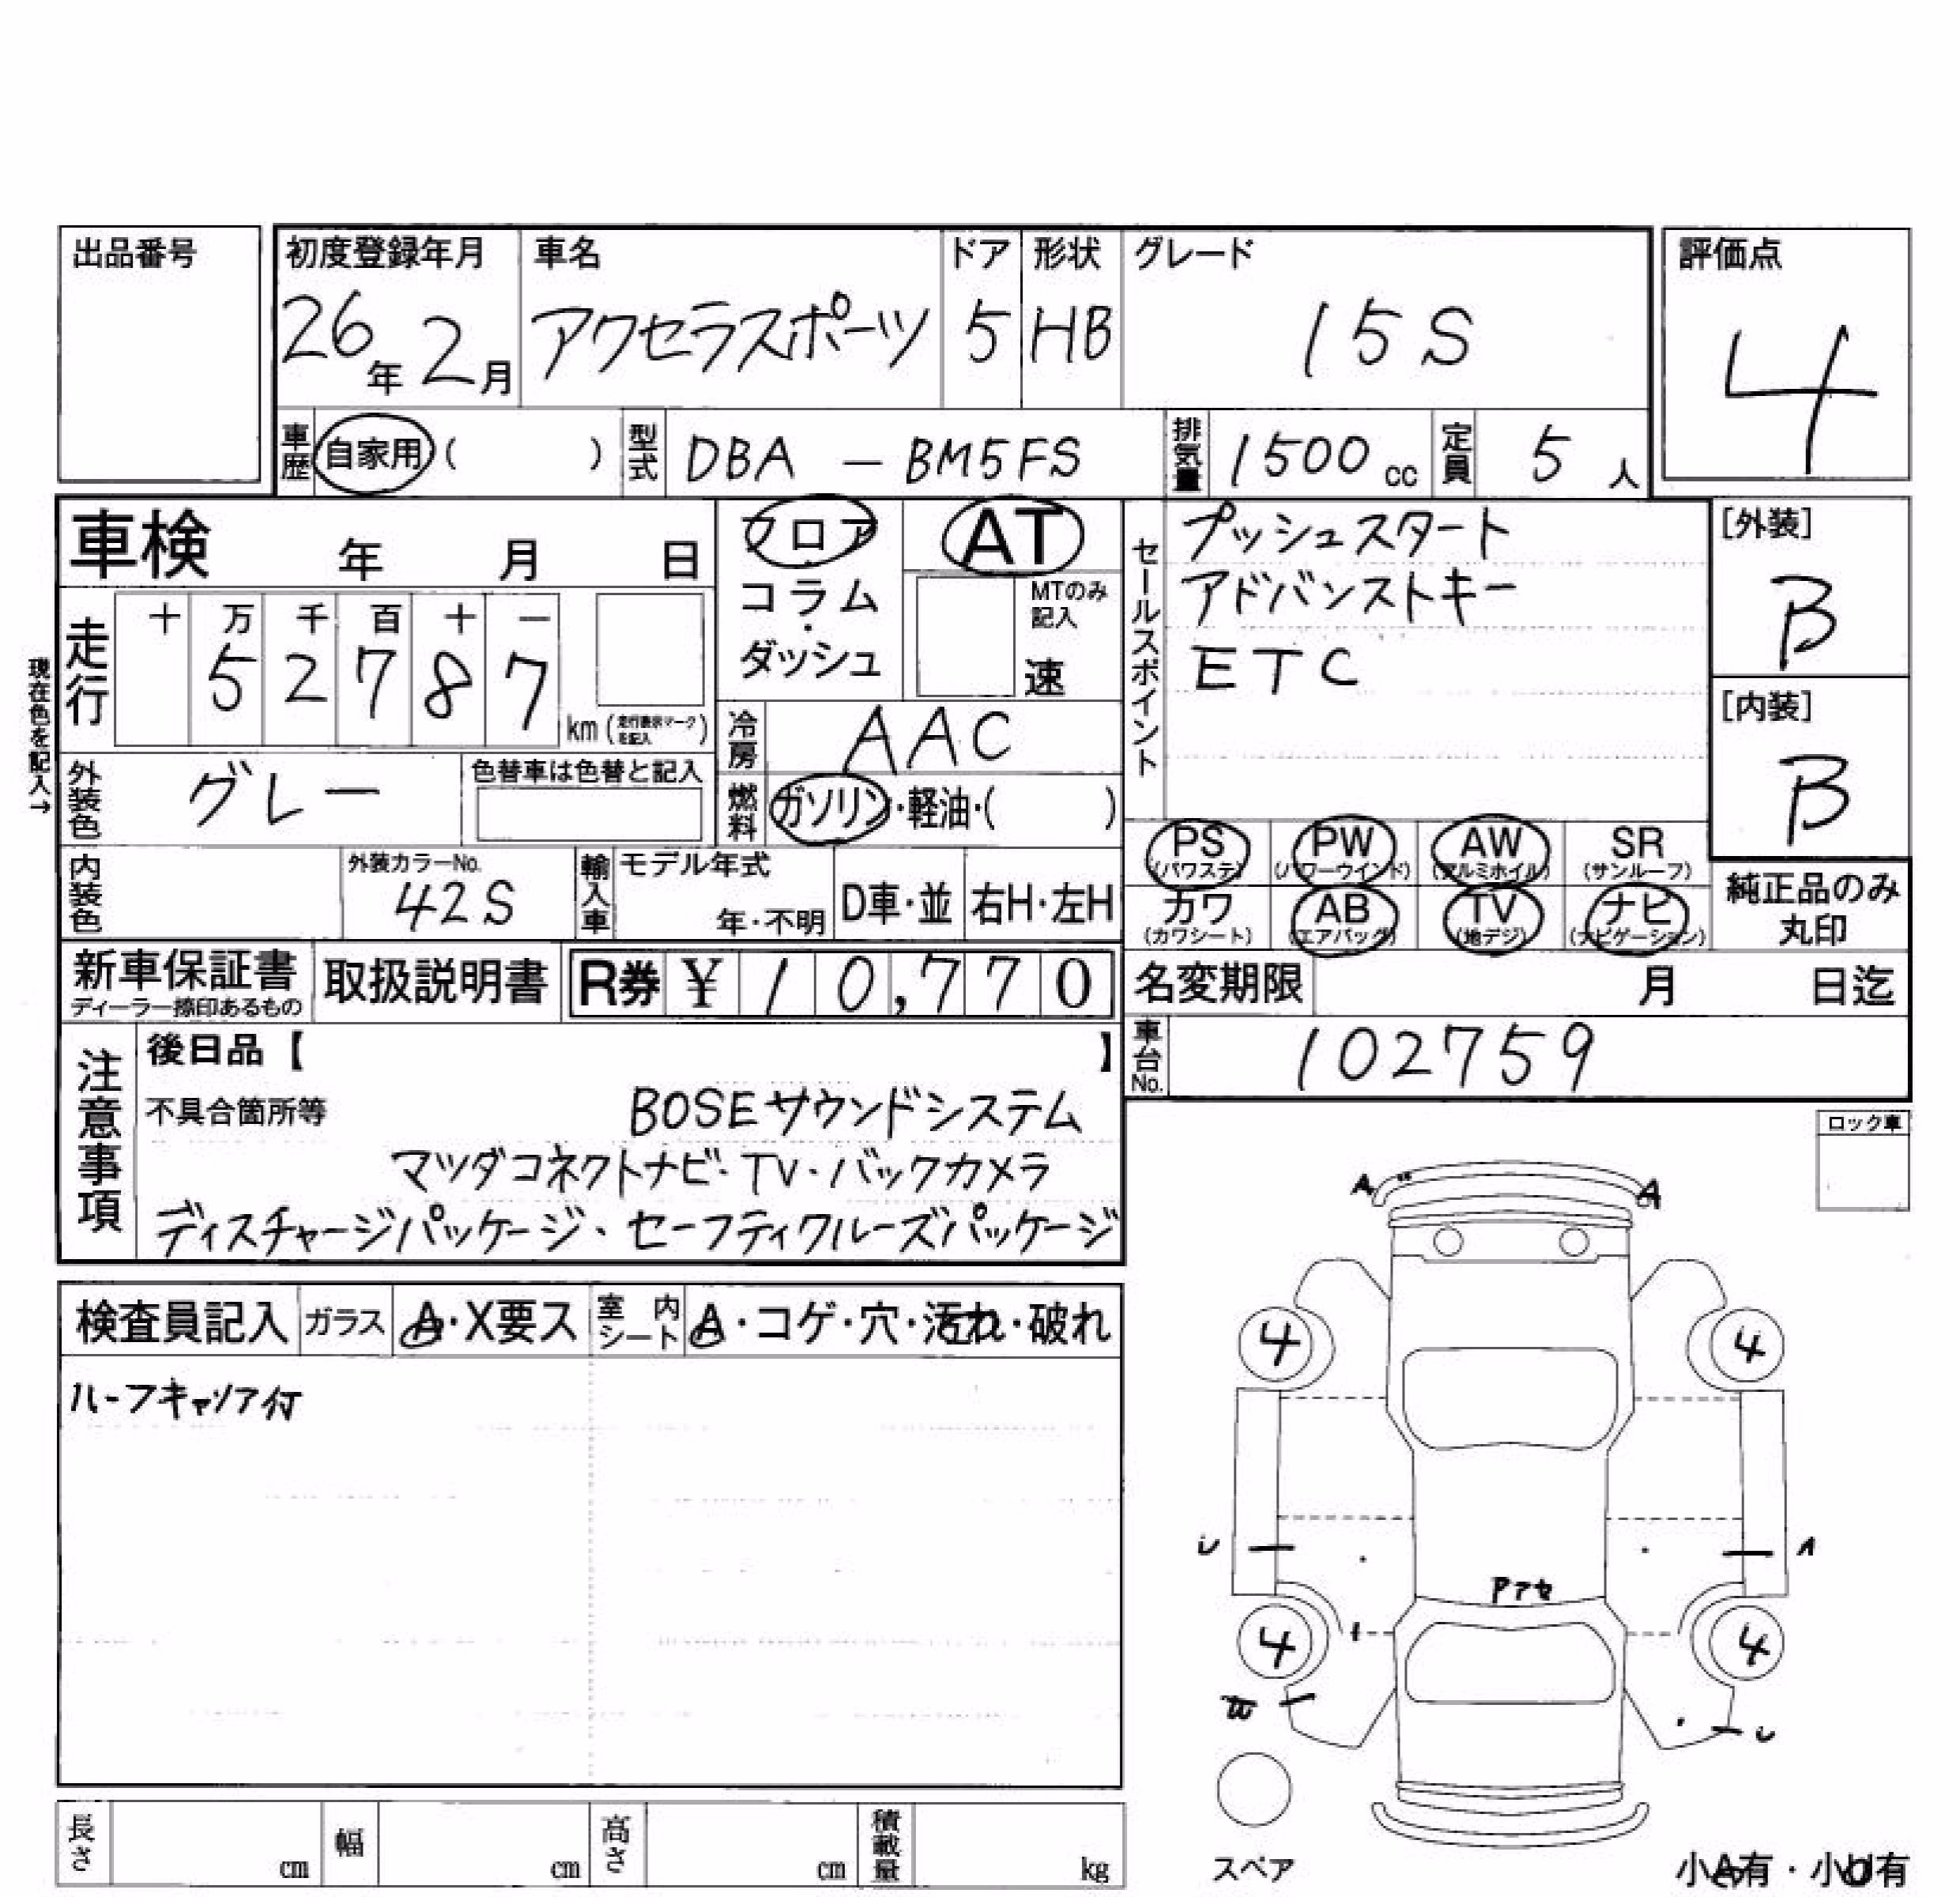 出品番号
初度登録年月 車名 ドア 形状 グレード 評価点
26年 2月 アクセラスポーツ 5 HB 15S 4
車歴 自家用 ( ) 型式 DBA - BM5FS 排気量 1500 cc 定員 5 人
車検 年 月 日
フロア
コラム・
ダッシュ
AT
MTのみ
記入
速
セールスポイント
プッシュスタート
アドバンストキー
ETC
[外装]
B
[内装]
B
現在色を記入→
走行 十 万 千 百 十 一
5 2 7 8 7 km (走行表示マークを記入)
冷房 AAC
外装色 グレー 色替車は色替と記入
燃料 ガソリン・軽油・( )
PS (パワステ) PW (パワーウインド) AW (アルミホイル) SR (サンルーフ)
カワ (カワシート) AB (エアバッグ) TV (地デジ) ナビ (ナビゲーション)
純正品のみ
丸印
内装色 外装カラーNo. 42S 輸入車 モデル年式 年・不明 D車・並 右H・左H
新車保証書 ディーラー捺印あるもの 取扱説明書 R券 ¥ 10,770
名変期限 月 日迄
車台No. 102759
注意事項
後日品【 】
不具合箇所等 BOSEサウンドシステム
マツダコネクトナビ・TV・バックカメラ
ディスチャージパッケージ、セーフティクルーズパッケージ
ロック車
A A
検査員記入 ガラス A・X要ス 室内シート A・コゲ・穴・汚れ・破れ
ルーフキャリア付
4 4
4 4
スペア
小A有・小U有
長さ cm 幅 cm 高さ cm 積載量 kg